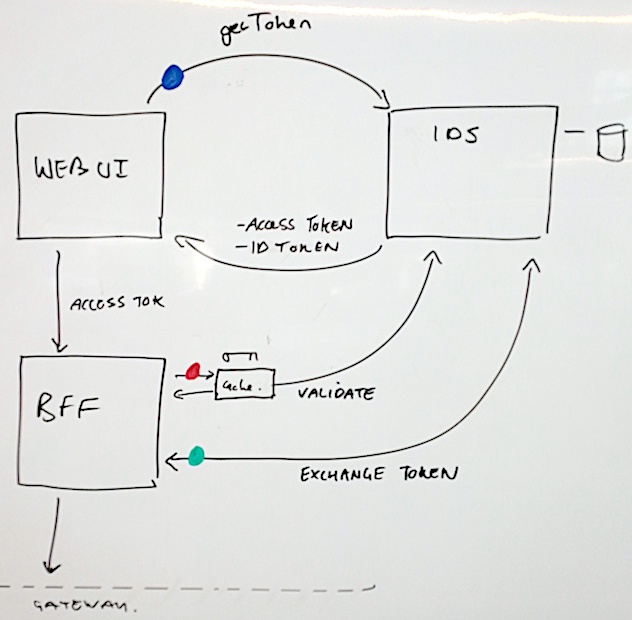 getToken
WEB UI
IDS
-ACCESS TOKEN
-ID TOKEN
ACCESS TOK
BFF
Cache.
VALIDATE
EXCHANGE TOKEN
GATEWAY.